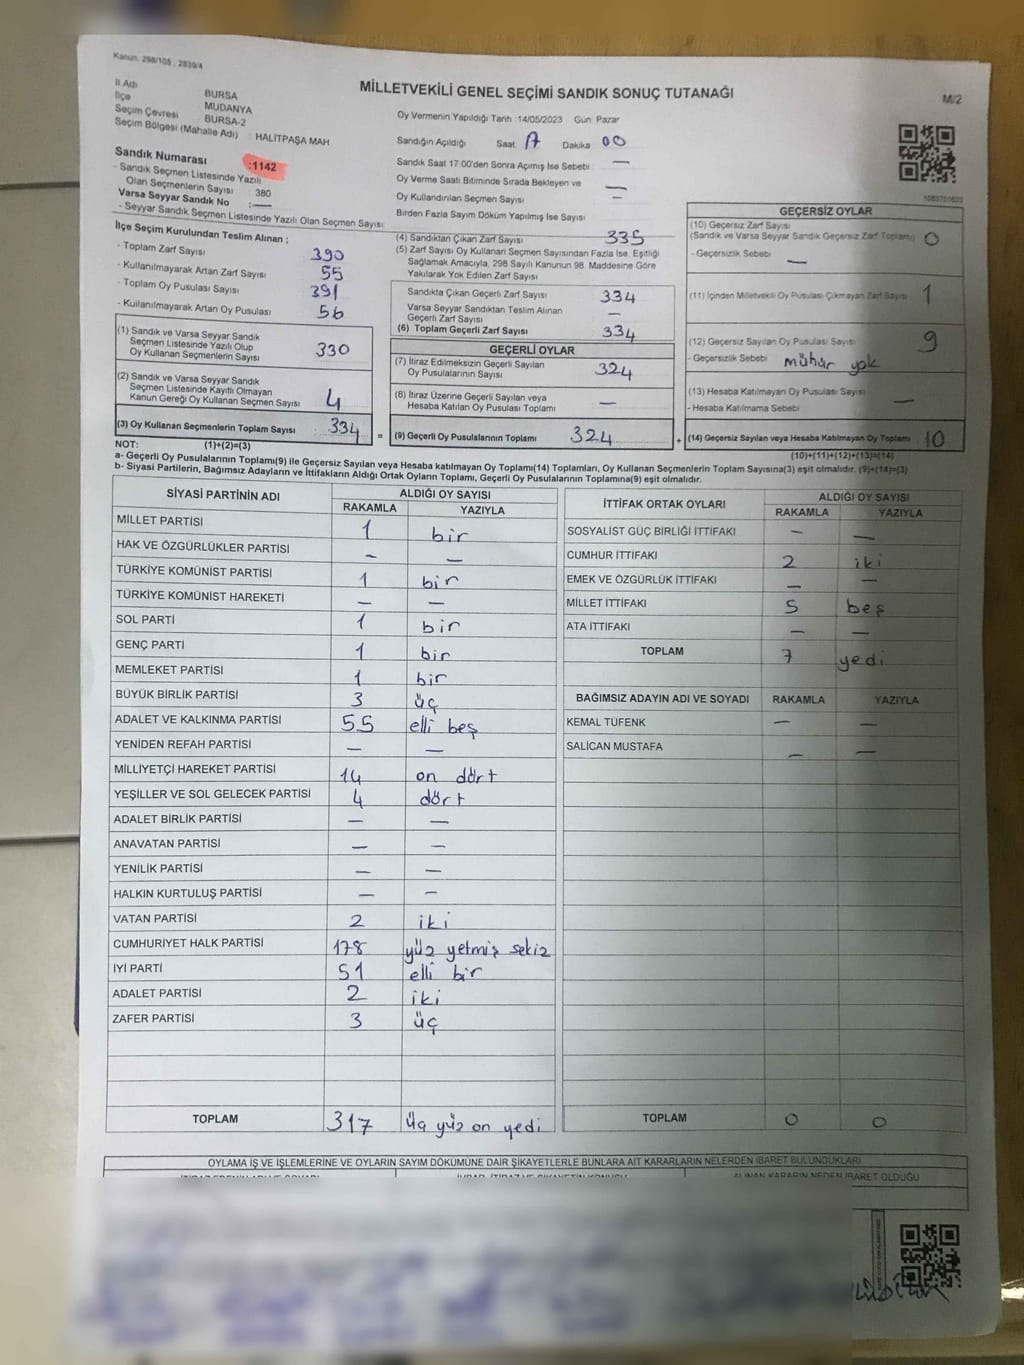 Kanun: 298/105 , 2839/4
MİLLETVEKİLİ GENEL SEÇİMİ SANDIK SONUÇ TUTANAĞI
M/2
İl Adı BURSA
İlçe MUDANYA
Seçim Çevresi BURSA-2
Seçim Bölgesi (Mahalle Adı) : HALİTPAŞA MAH
Sandık Numarası :1142
- Sandık Seçmen Listesinde Yazılı
Olan Seçmenlerin Sayısı 380
Varsa Seyyar Sandık No : —
- Seyyar Sandık Seçmen Listesinde Yazılı Olan Seçmen Sayısı
Oy Vermenin Yapıldığı Tarih :14/05/2023 Gün: Pazar
Sandığın Açıldığı Saat: 17 Dakika 00
Sandık Saat 17:00'den Sonra Açılmış İse Sebebi : —
Oy Verme Saati Bitiminde Sırada Bekleyen ve
Oy Kullandırılan Seçmen Sayısı —
Birden Fazla Sayım Döküm Yapılmış İse Sayısı —
İlçe Seçim Kurulundan Teslim Alınan ;
- Toplam Zarf Sayısı 390
- Kullanılmayarak Artan Zarf Sayısı 55
- Toplam Oy Pusulası Sayısı 391
- Kullanılmayarak Artan Oy Pusulası 56
(1) Sandık ve Varsa Seyyar Sandık
Seçmen Listesinde Yazılı Olup
Oy Kullanan Seçmenlerin Sayısı 330
(2) Sandık ve Varsa Seyyar Sandık
Seçmen Listesinde Kayıtlı Olmayan
Kanun Gereği Oy Kullanan Seçmen Sayısı 4
(3) Oy Kullanan Seçmenlerin Toplam Sayısı 334
(4) Sandıktan Çıkan Zarf Sayısı 335
(5) Zarf Sayısı Oy Kullanan Seçmen Sayısından Fazla İse, Eşitliği
Sağlamak Amacıyla, 298 Sayılı Kanunun 98. Maddesine Göre
Yakılarak Yok Edilen Zarf Sayısı
Sandıkta Çıkan Geçerli Zarf Sayısı 334
Varsa Seyyar Sandıktan Teslim Alınan
Geçerli Zarf Sayısı —
(6) Toplam Geçerli Zarf Sayısı 334
GEÇERLİ OYLAR
(7) İtiraz Edilmeksizin Geçerli Sayılan
Oy Pusulalarının Sayısı 324
(8) İtiraz Üzerine Geçerli Sayılan veya
Hesaba Katılan Oy Pusulası Toplamı —
= (9) Geçerli Oy Pusulalarının Toplamı 324
GEÇERSİZ OYLAR
(10) Geçersiz Zarf Sayısı
(Sandık ve Varsa Seyyar Sandık Geçersiz Zarf Toplamı) 0
- Geçersizlik Sebebi : —
(11) İçinden Milletvekili Oy Pusulası Çıkmayan Zarf Sayısı 1
(12) Geçersiz Sayılan Oy Pusulası Sayısı 9
- Geçersizlik Sebebi : mühür yok
(13) Hesaba Katılmayan Oy Pusulası Sayısı —
- Hesaba Katılmama Sebebi
+ (14) Geçersiz Sayılan veya Hesaba Katılmayan Oy Toplamı 10
NOT: (1)+(2)=(3) (10)+(11)+(12)+(13)=(14)
a- Geçerli Oy Pusulasının Toplamı(9) ile Geçersiz Sayılan veya Hesaba katılmayan Oy Toplamı(14) Toplamları, Oy Kullanan Seçmenlerin Toplam Sayısına(3) eşit olmalıdır. (9)+(14)=(3)
b- Siyasi Partilerin, Bağımsız Adayların ve İttifakların Aldığı Ortak Oyların Toplamı, Geçerli Oy Pusulalarının Toplamına(9) eşit olmalıdır.
SİYASİ PARTİNİN ADI ALDIĞI OY SAYISI
RAKAMLA YAZIYLA
MİLLET PARTİSİ 1 bir
HAK VE ÖZGÜRLÜKLER PARTİSİ — —
TÜRKİYE KOMÜNİST PARTİSİ 1 bir
TÜRKİYE KOMÜNİST HAREKETİ — —
SOL PARTİ 1 bir
GENÇ PARTİ 1 bir
MEMLEKET PARTİSİ 1 bir
BÜYÜK BİRLİK PARTİSİ 3 üç
ADALET VE KALKINMA PARTİSİ 55 elli beş
YENİDEN REFAH PARTİSİ — —
MİLLİYETÇİ HAREKET PARTİSİ 14 on dört
YEŞİLLER VE SOL GELECEK PARTİSİ 4 dört
ADALET BİRLİK PARTİSİ — —
ANAVATAN PARTİSİ — —
YENİLİK PARTİSİ — —
HALKIN KURTULUŞ PARTİSİ — —
VATAN PARTİSİ 2 iki
CUMHURİYET HALK PARTİSİ 178 yüz yetmiş sekiz
İYİ PARTİ 51 elli bir
ADALET PARTİSİ 2 iki
ZAFER PARTİSİ 3 üç
TOPLAM 317 Üç yüz on yedi
İTTİFAK ORTAK OYLARI ALDIĞI OY SAYISI
RAKAMLA YAZIYLA
SOSYALİST GÜÇ BİRLİĞİ İTTİFAKI — —
CUMHUR İTTİFAKI 2 iki
EMEK VE ÖZGÜRLÜK İTTİFAKI — —
MİLLET İTTİFAKI 5 beş
ATA İTTİFAKI — —
TOPLAM 7 yedi
BAĞIMSIZ ADAYIN ADI VE SOYADI RAKAMLA YAZIYLA
KEMAL TÜFENK — —
SALİCAN MUSTAFA — —
TOPLAM 0 0
OYLAMA İŞ VE İŞLEMLERİNE VE OYLARIN SAYIM DÖKÜMÜNE DAİR ŞİKAYETLERLE BUNLARA AİT KARARLARIN NELERDEN İBARET BULUNDUKLARI
ALINAN KARARIN NEDEN İBARET OLDUĞU